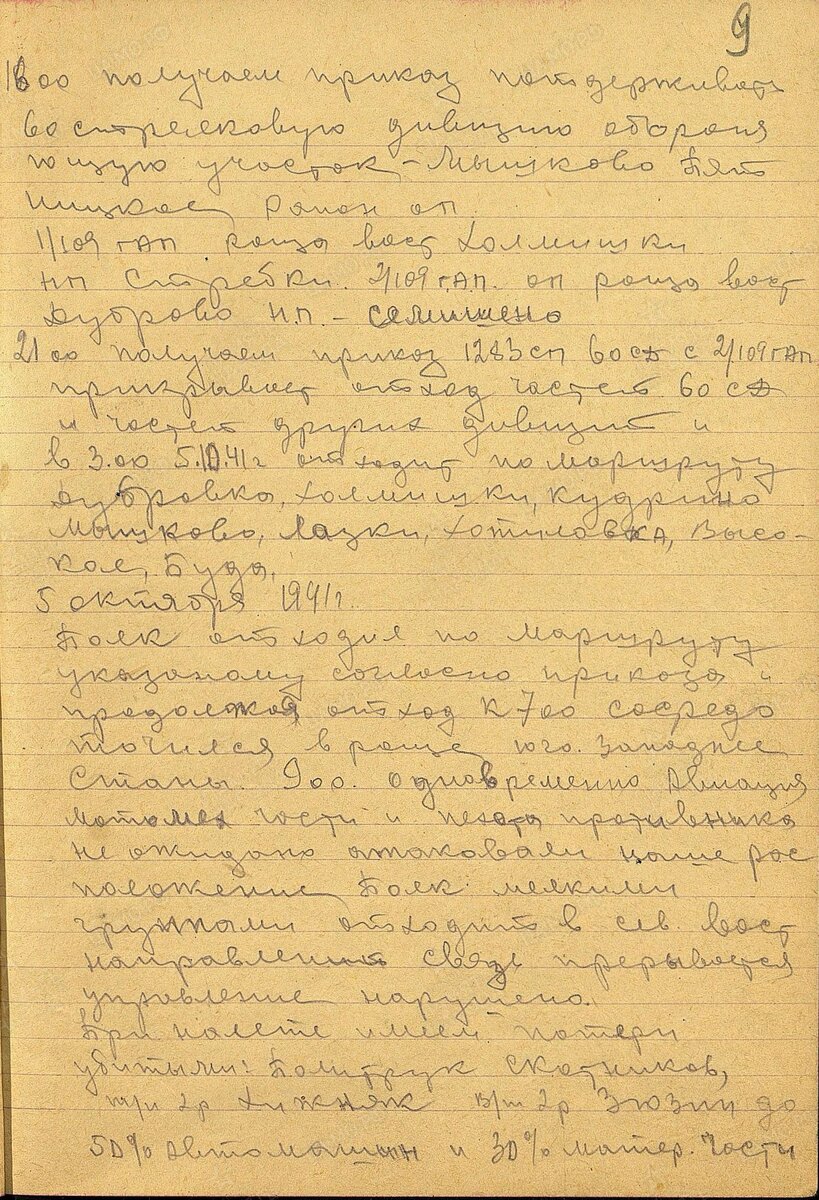 9
18 00 получаем приказ поддерживать
60 стрелковую дивизию оборон
яющую участок - Мышково Пят
ницкое Район оп.
1/109 гАП роща вост Холмишки
НП Стребки. 2/109 гАП. оп роща вост
Дуброво Н.П. - семишено
21 00 получаем приказ 1283 сп 60 сд с 2/109 гАП
прикрывает отход частей 60 сд
и частей других дивизий и
в 3.00 5.10.41 г отходит по маршруту
Дубровка, Холмишки, Кудрино
Мышково, Лазки, Хотиловка, Высо-
кое, Буда,
5 октября 1941 г.
Полк отходил по маршруту
указаному согласно приказа и
продолжая отход к 7 00 сосредо
точился в роще юго. Западнее
Станы. 9 00. одновременно Авиация
мотомех части и пехота противника
не ожидано атаковали наше рас
положение Полк мелкими
группами отходит в сев вост
направлении связь прерывается
управление нарушено.
При налете имеем потери
убитыми: Политрук Скотников,
2р Хижняк 2р Зюзин до
50% Автомашин и 30% матер. части